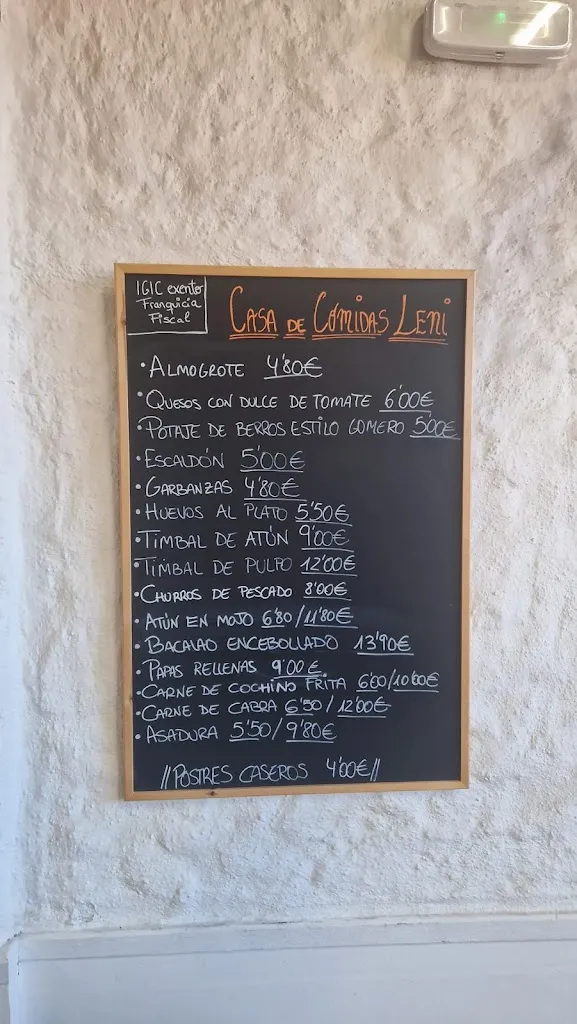 IGIC exento
Franquicia
Fiscal
CASA DE COMIDAS LENI
• ALMOGROTE 4'80€
• QUESOS CON DULCE DE TOMATE 6'00€
• POTAJE DE BERROS ESTILO GOMERO 5'00€
• ESCALDÓN 5'00€
• GARBANZAS 4'80€
• HUEVOS AL PLATO 5'50€
• TIMBAL DE ATÚN 9'00€
• TIMBAL DE PULPO 12'00€
• CHURROS DE PESCADO 8'00€
• ATÚN EN MOJO 6'80/11'80€
• BACALAO ENCEBOLLADO 13'90€
• PAPAS RELLENAS 9'00€
• CARNE DE COCHINO FRITA 6'00/10'00€
• CARNE DE CABRA 6'50/12'00€
• ASADURA 5'50/9'80€
//POSTRES CASEROS 4'00€//